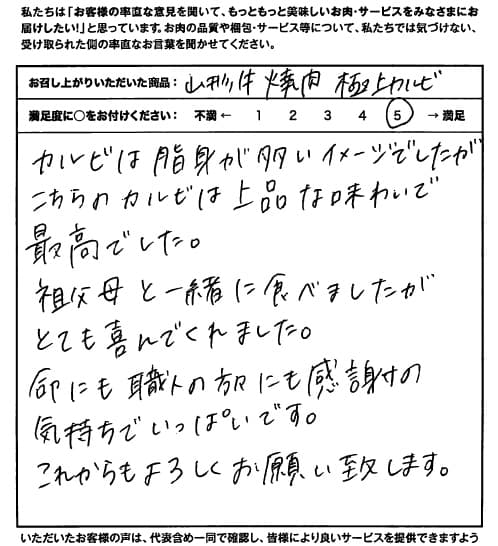 私たちは「お客様の率直な意見を聞いて、もっともっと美味しいお肉・サービスをみなさまにお
届けしたい!」と思っています。お肉の品質や梱包・サービス等について、私たちでは気づけない、
受け取られた側の率直なお言葉を聞かせてください。
お召し上がりいただいた商品： 山形牛 焼肉 極上カルビ
満足度に○をお付けください： 不満 ← 1 2 3 4 5 → 満足
カルビは脂身が多いイメージでしたが
こちらのカルビは上品な味わいで
最高でした。
祖父母と一緒に食べましたが
とても喜んでくれました。
命にも職人の方々にも感謝の
気持ちでいっぱいです。
これからもよろしくお願い致します。
いただいたお客様の声は、代表含め一同で確認し、皆様により良いサービスを提供できますよう